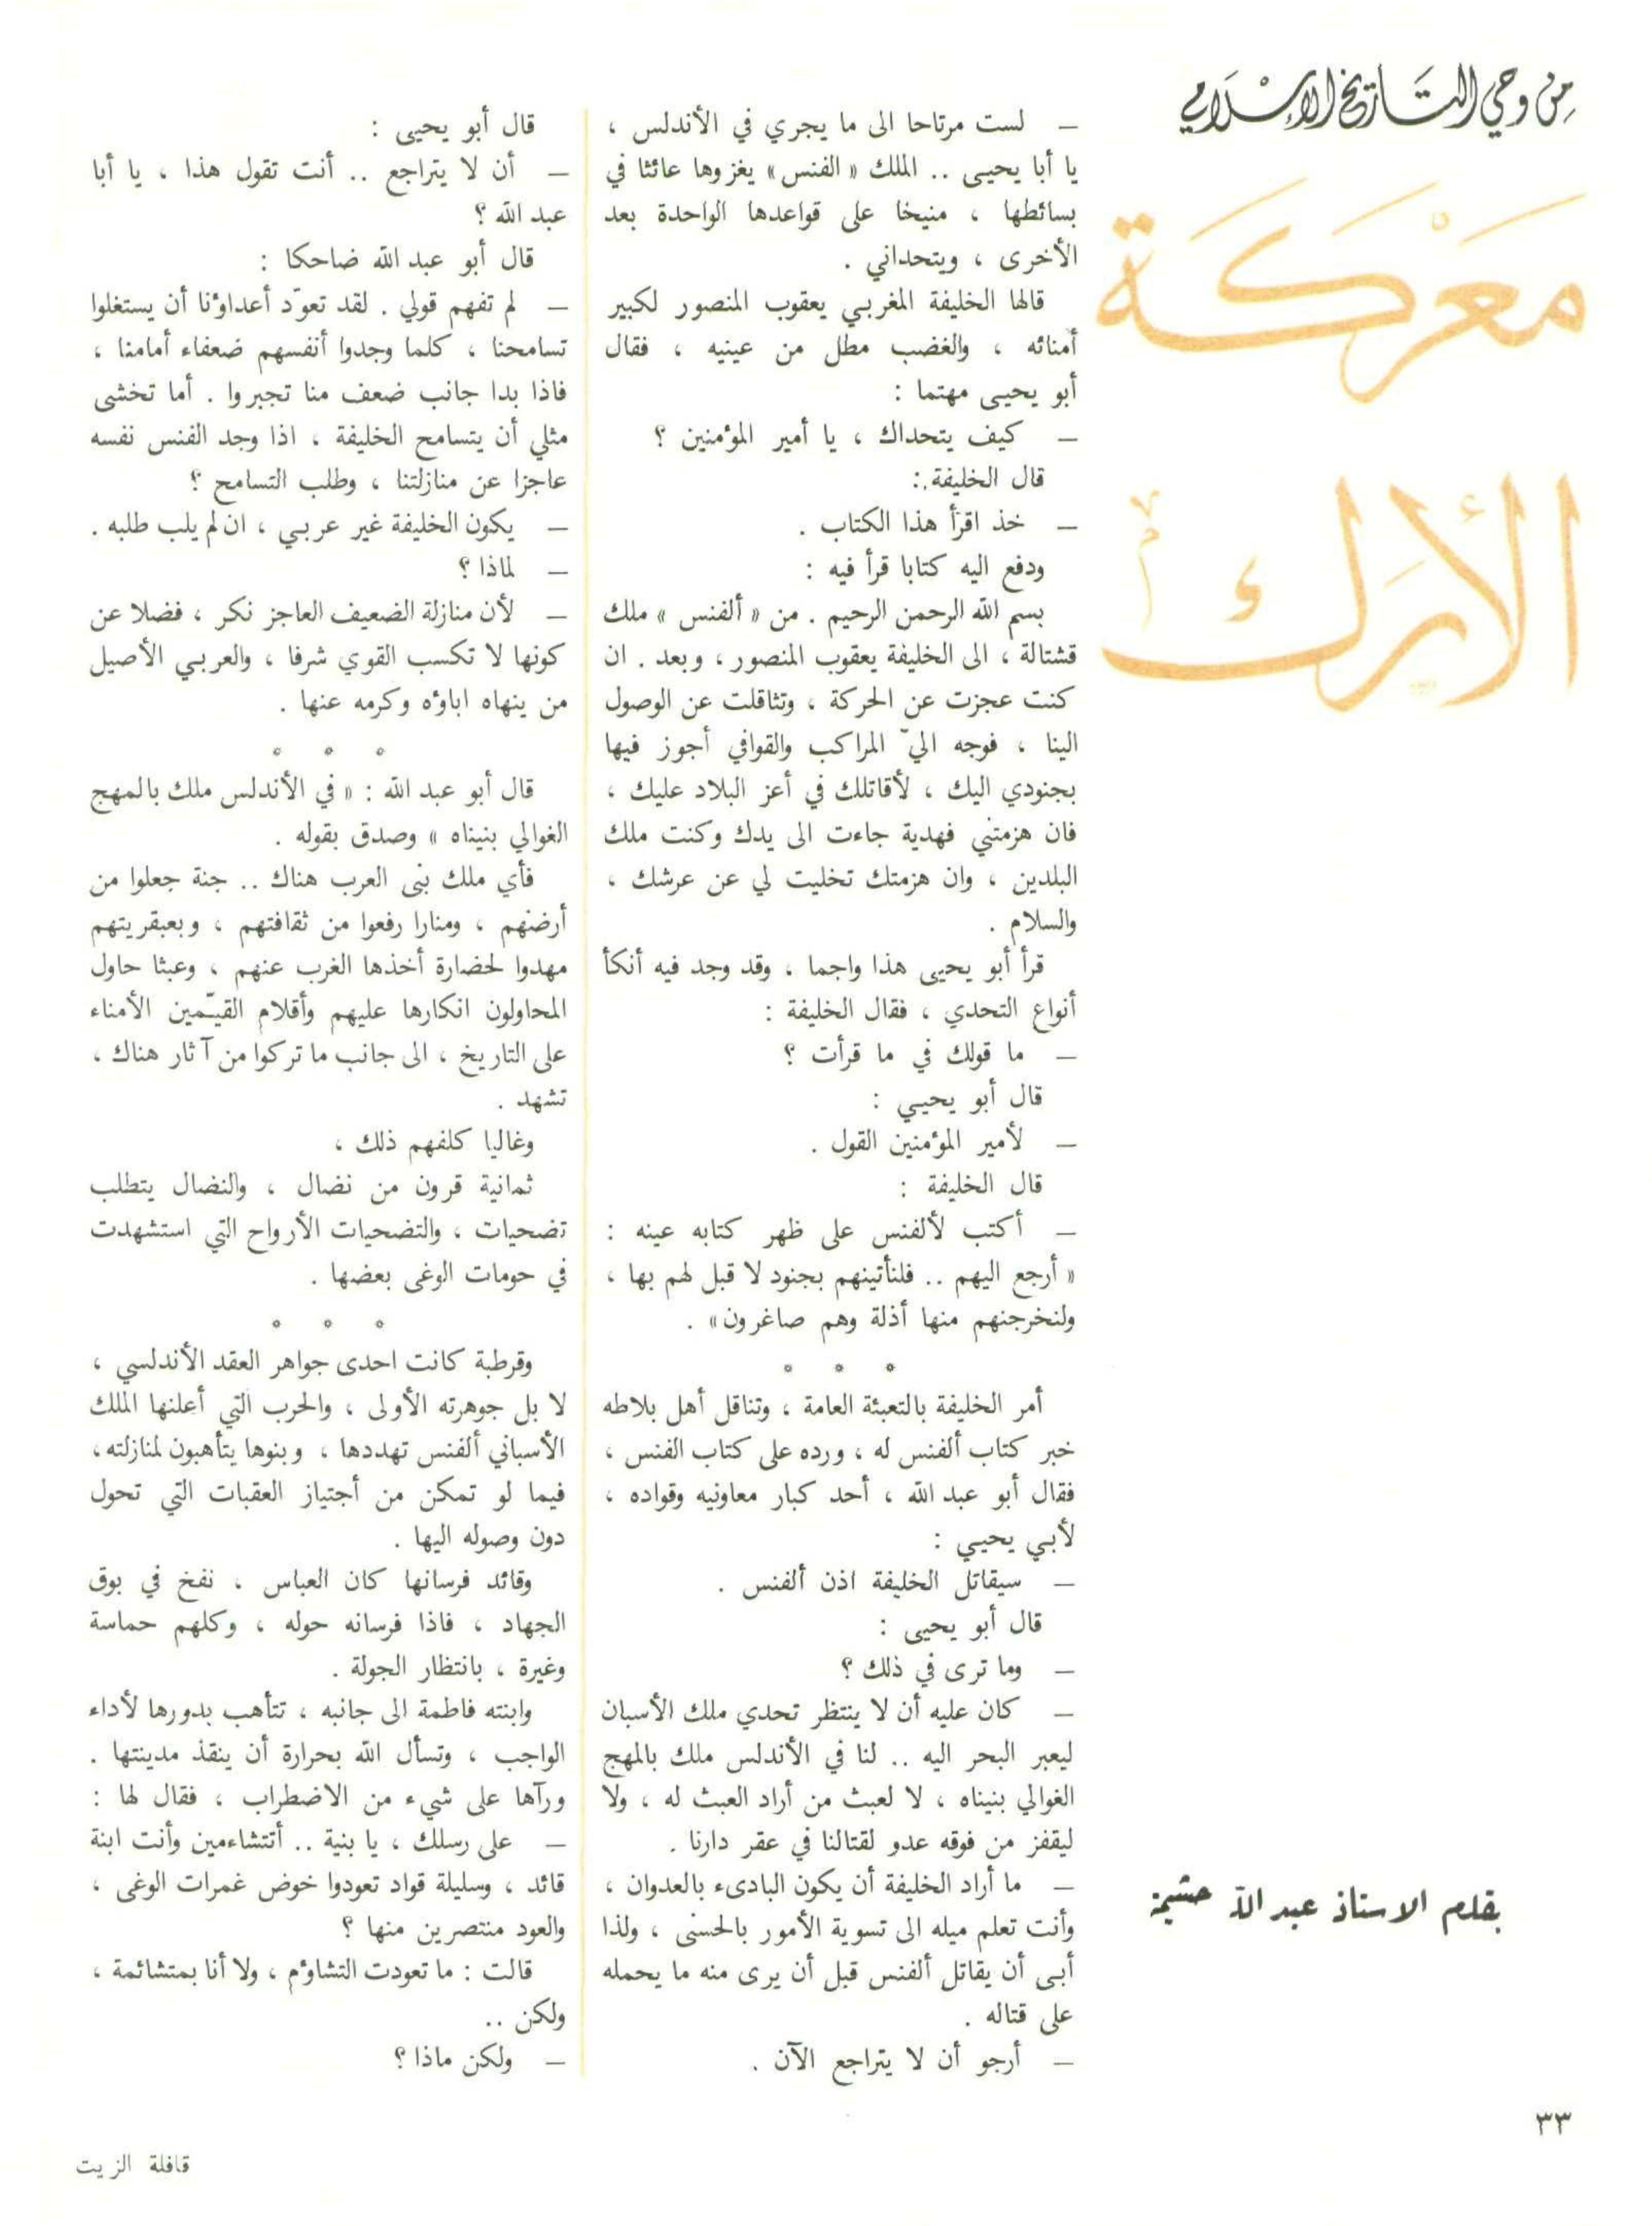 من وحي التاريخ الإسلامي
معركة
الأرك
بقلم الاستاذ عبد الله حشيمة
— لست مرتاحا الى ما يجري في الأندلس ،
يا أبا يحيى .. الملك « الفنس » يغزوها عائثا في
بسائطها ، منيخا على قواعدها الواحدة بعد
الأخرى ، ويتحداني .
قالها الخليفة المغربي يعقوب المنصور لكبير
أمنائه ، والغضب مطل من عينيه ، فقال
أبو يحيى مهتما :
— كيف يتحداك ، يا أمير المؤمنين ؟
قال الخليفة :
— خذ اقرأ هذا الكتاب .
ودفع اليه كتابا قرأ فيه :
بسم الله الرحمن الرحيم . من « ألفنس » ملك
قشتالة ، الى الخليفة يعقوب المنصور ، وبعد . ان
كنت عجزت عن الحركة ، وتثاقلت عن الوصول
الينا ، فوجه اليّ المراكب والقوافي أجوز فيها
بجنودي اليك ، لأقاتلك في أعز البلاد عليك ،
فان هزمتني فهدية جاءت الى يدك وكنت ملك
البلدين ، وان هزمتك تخليت لي عن عرشك ،
والسلام .
قرأ أبو يحيى هذا واجما ، وقد وجد فيه أنكأ
أنواع التحدي ، فقال الخليفة :
— ما قولك في ما قرأت ؟
قال أبو يحيي :
— لأمير المؤمنين القول .
قال الخليفة :
— أكتب لألفنس على ظهر كتابه عينه :
« أرجع اليهم .. فلنأتينهم بجنود لا قبل لهم بها ،
ولنخرجنهم منها أذلة وهم صاغرون » .
* * *
أمر الخليفة بالتعبئة العامة ، وتناقل أهل بلاطه
خبر كتاب ألفنس له ، ورده على كتاب الفنس ،
فقال أبو عبد الله ، أحد كبار معاونيه وقواده ،
لأبي يحيي :
— سيقاتل الخليفة اذن ألفنس .
قال أبو يحيى :
— وما ترى في ذلك ؟
— كان عليه أن لا ينتظر تحدي ملك الأسبان
ليعبر البحر اليه .. لنا في الأندلس ملك بالمهج
الغوالي بنيناه ، لا لعبث من أراد العبث له ، ولا
ليقفز من فوقه عدو لقتالنا في عقر دارنا .
— ما أراد الخليفة أن يكون البادىء بالعدوان ،
وأنت تعلم ميله الى تسوية الأمور بالحسنى ، ولذا
أبى أن يقاتل ألفنس قبل أن يرى منه ما يحمله
على قتاله .
— أرجو أن لا يتراجع الآن .
قال أبو يحيى :
— أن لا يتراجع .. أنت تقول هذا ، يا أبا
عبد الله ؟
قال أبو عبد الله ضاحكا :
— لم تفهم قولي . لقد تعوّد أعداؤنا أن يستغلوا
تسامحنا ، كلما وجدوا أنفسهم ضعفاء أمامنا ،
فاذا بدا جانب ضعف منا تجبروا . أما تخشى
مثلي أن يتسامح الخليفة ، اذا وجد الفنس نفسه
عاجزا عن منازلتنا ، وطلب التسامح ؟
— يكون الخليفة غير عربي ، ان لم يلب طلبه .
— لماذا ؟
— لأن منازلة الضعيف العاجز نكر ، فضلا عن
كونها لا تكسب القوي شرفا ، والعربي الأصيل
من ينهاه اباؤه وكرمه عنها .
* * *
قال أبو عبد الله : « في الأندلس ملك بالمهج
الغوالي بنيناه » وصدق بقوله .
فأي ملك بنى العرب هناك .. جنة جعلوا من
أرضهم ، ومنارا رفعوا من ثقافتهم ، وبعبقريتهم
مهدوا لحضارة أخذها الغرب عنهم ، وعبثا حاول
المحاولون انكارها عليهم وأقلام القيّمين الأمناء
على التاريخ ، الى جانب ما تركوا من آثار هناك ،
تشهد .
وغاليا كلفهم ذلك ،
ثمانية قرون من نضال ، والنضال يتطلب
تضحيات ، والتضحيات الأرواح التي استشهدت
في حومات الوغى بعضها .
* * *
وقرطبة كانت احدى جواهر العقد الأندلسي ،
لا بل جوهرته الأولى ، والحرب التي أعلنها الملك
الأسباني ألفنس تهددها ، وبنوها يتأهبون لمنازلته ،
فيما لو تمكن من أجتياز العقبات التي تحول
دون وصوله اليها .
وقائد فرسانها كان العباس ، نفخ في بوق
الجهاد ، فاذا فرسانه حوله ، وكلهم حماسة
وغيرة ، بانتظار الجولة .
وابنته فاطمة الى جانبه ، تتأهب بدورها لأداء
الواجب ، وتسأل الله بحرارة أن ينقذ مدينتها .
ورآها على شيء من الاضطراب ، فقال لها :
— على رسلك ، يا بنية .. أتتشاءمين وأنت ابنة
قائد ، وسليلة قواد تعودوا خوض غمرات الوغى ،
والعود منتصرين منها ؟
قالت : ما تعودت التشاؤم ، ولا أنا بمتشائمة ،
ولكن ..
— ولكن ماذا ؟
٣٣
قافلة الزيت